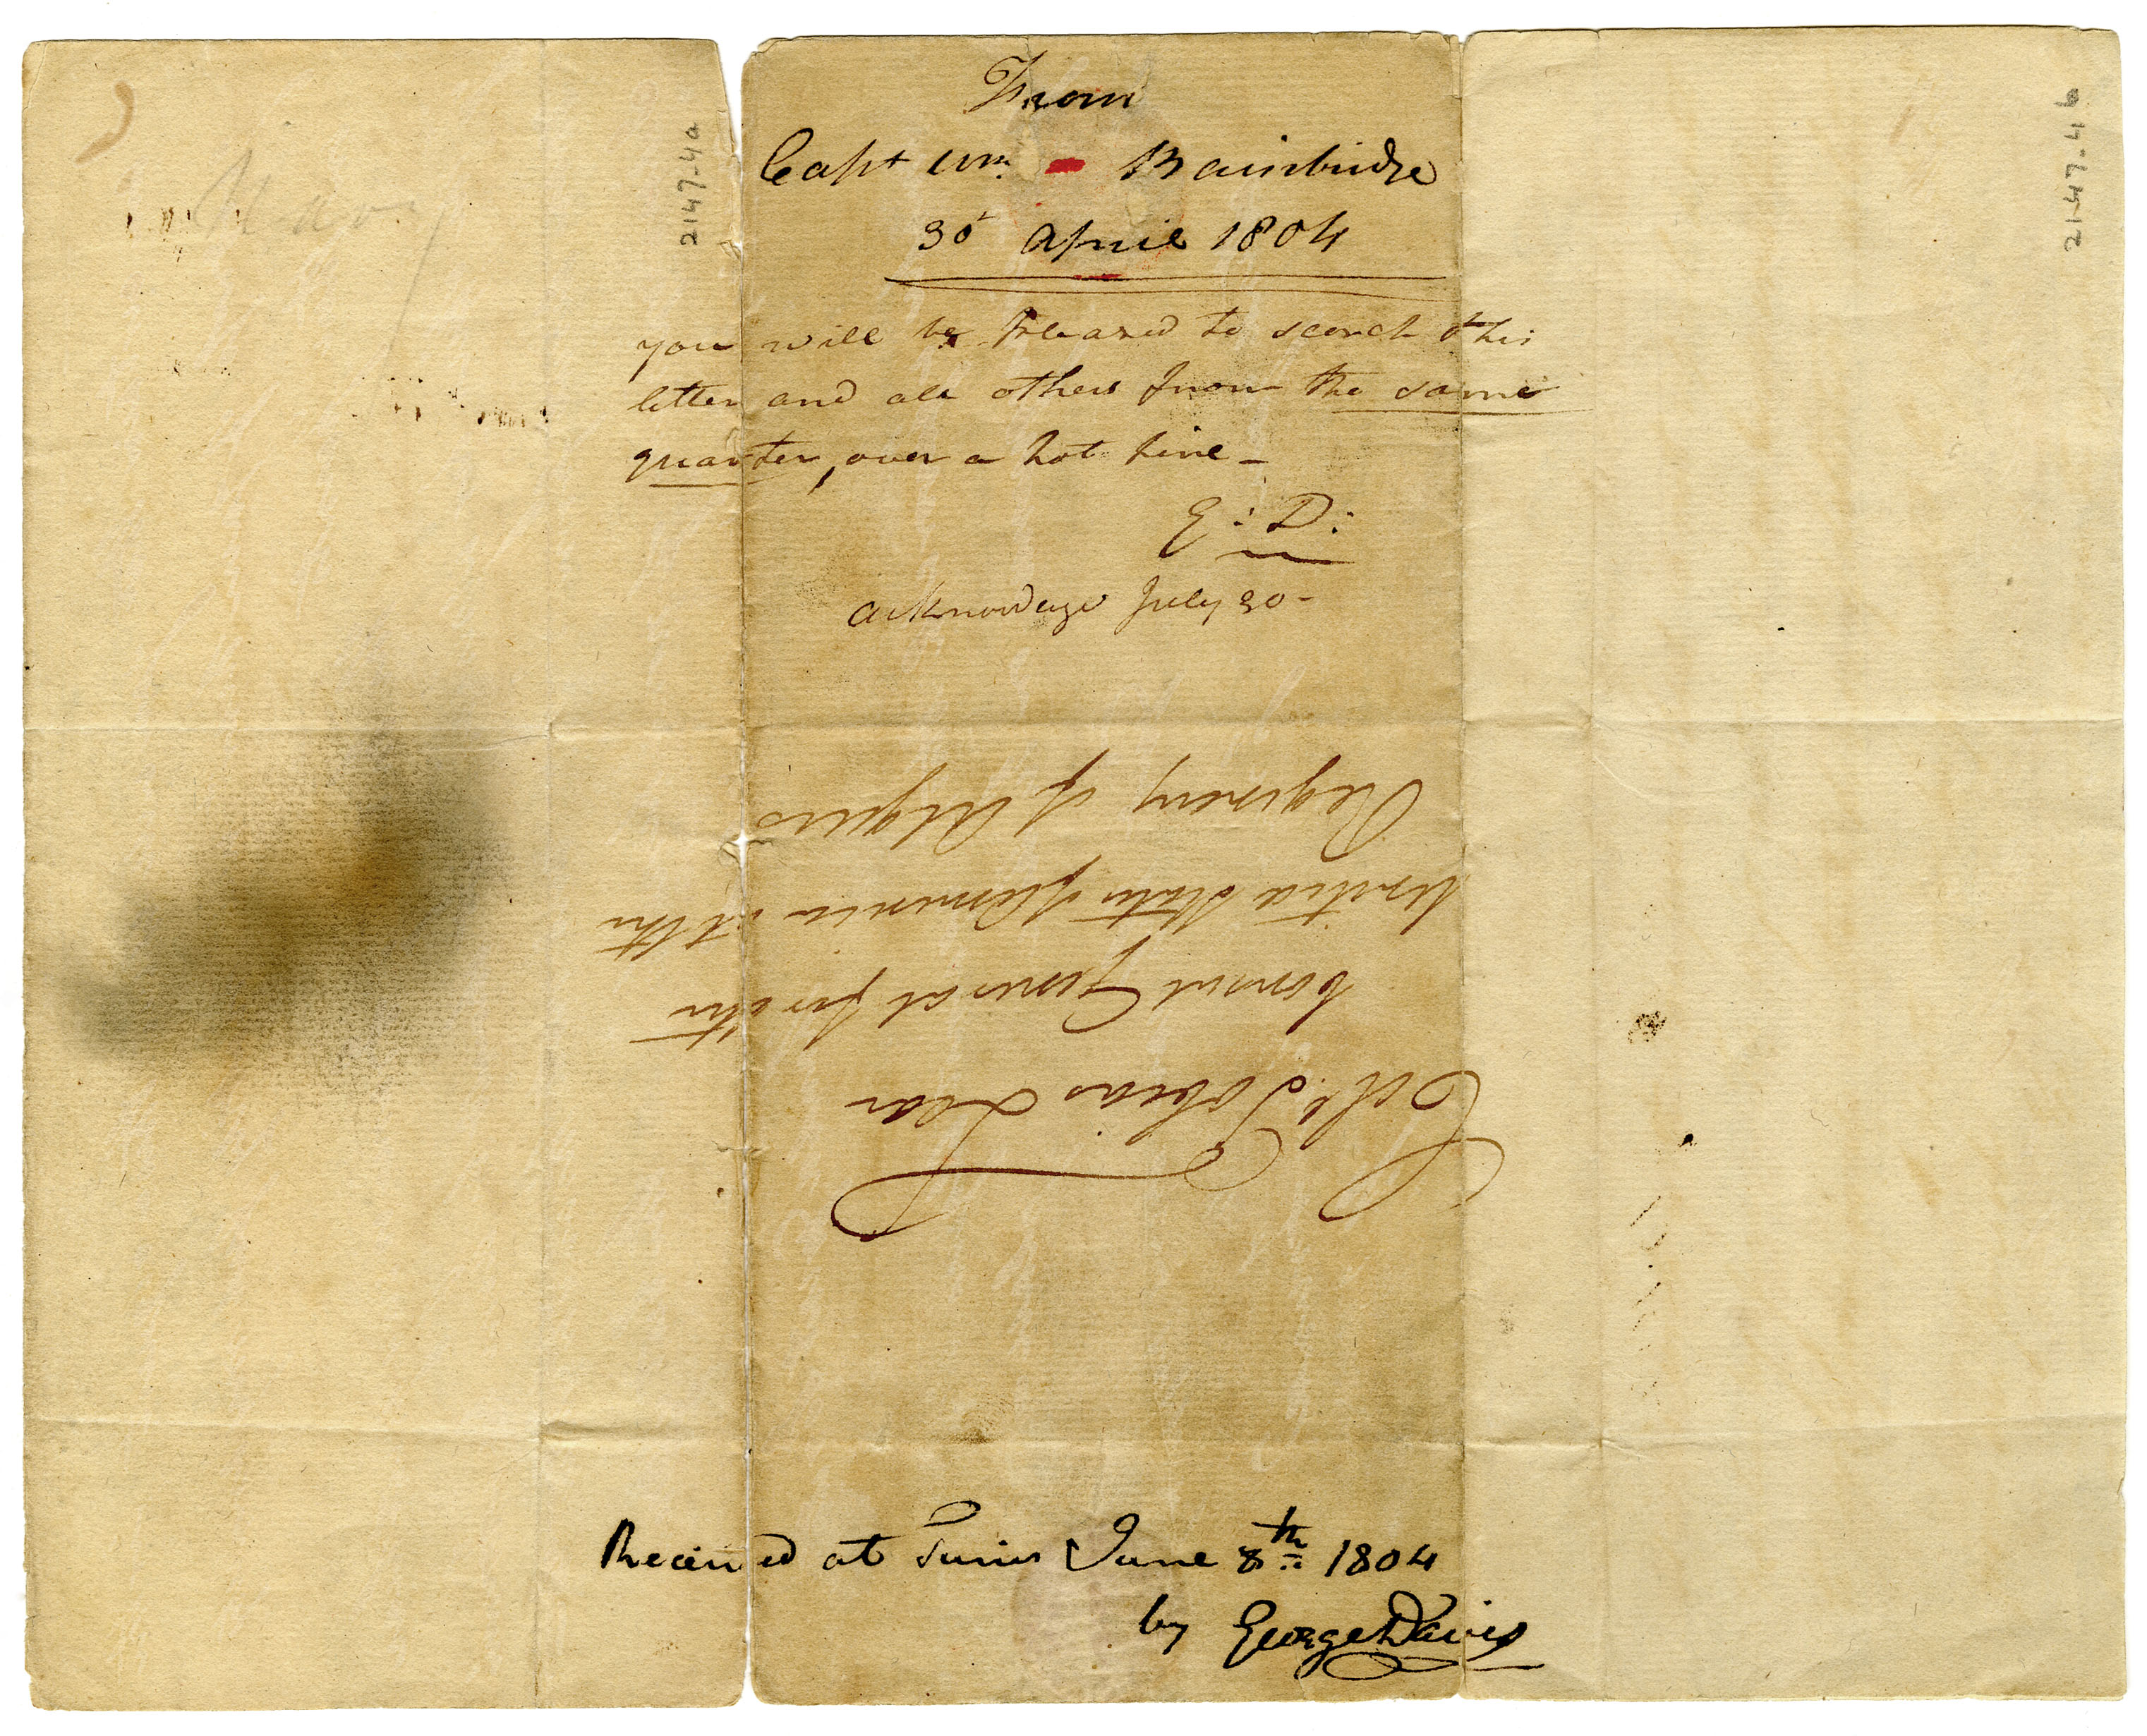 From
Capt Wm. Bainbridge
30 April 1804
you will be pleased to scorch this
letter and all others from the same
quarter, over a hot fire –
G: D:
acknowledge July 30 –
Coll. Tobias Lear
Consul General for the
United States of America at the
Regency of Algiers
Received at Tunis June 8th 1804
by George Davis
2147-4a
2147-4b